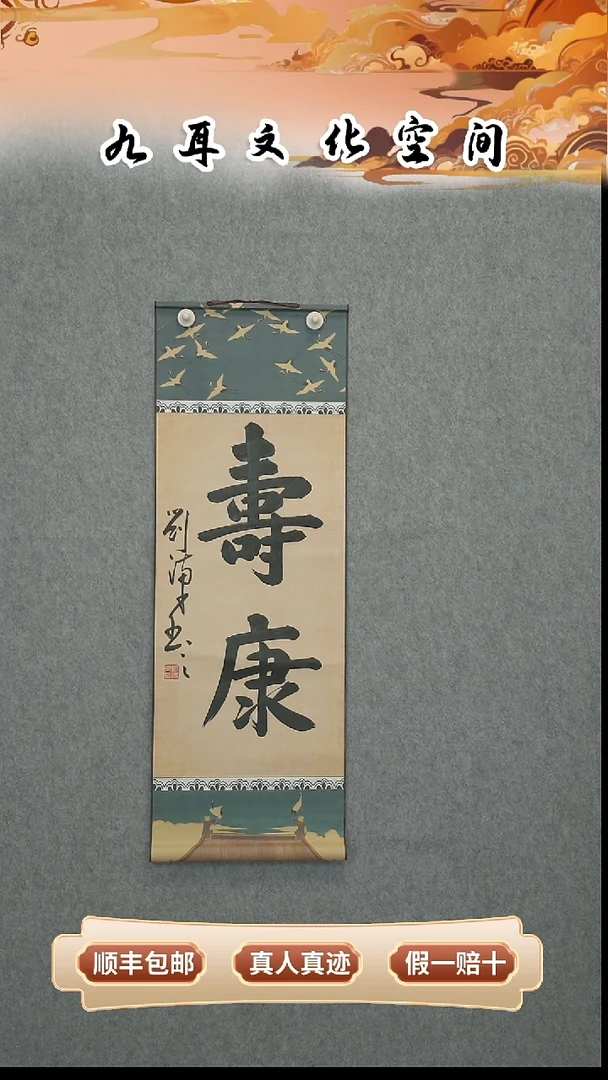 九耳文化空间
壽康
顺丰包邮
真人真迹
假一赔十